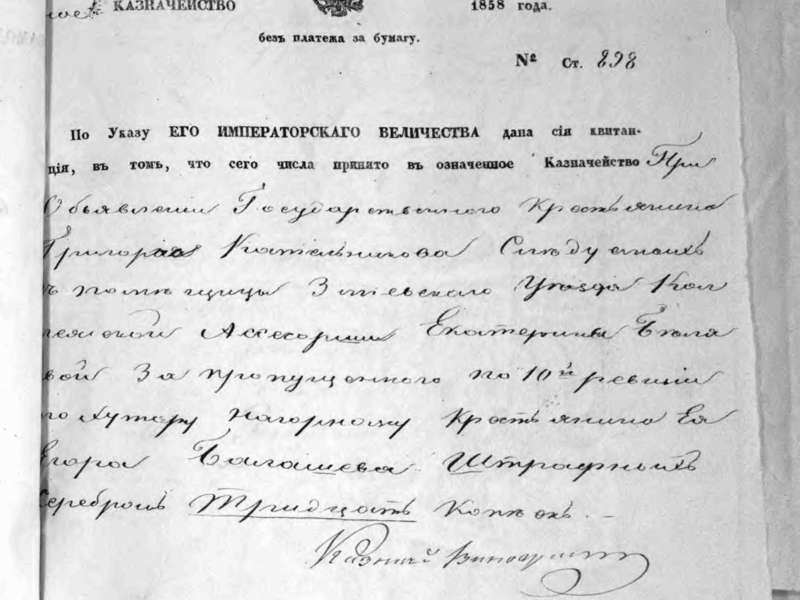 КАЗНАЧЕЙСТВО 1858 года.
безъ платежа за бумагу.
№ Ст. 898
По Указу ЕГО ИМПЕРАТОРСКАГО ВЕЛИЧЕСТВА дана сія квитан-
ція, въ томъ, что сего числа принято въ означенное Казначейство При
Объявленіи Государственного Крестьянина
Григорія Котельникова Следуемыхъ
съ помѣщицы Зміевского Уезда Кол
лежской Асесорши Екатерины Беля
вой За пропущенного по 10й ревизіи
по хутору Нагорному Крестьянина Ея
Егора Балашева Штрафныхъ
Серебромъ Тридцать Копѣекъ.
Казначей